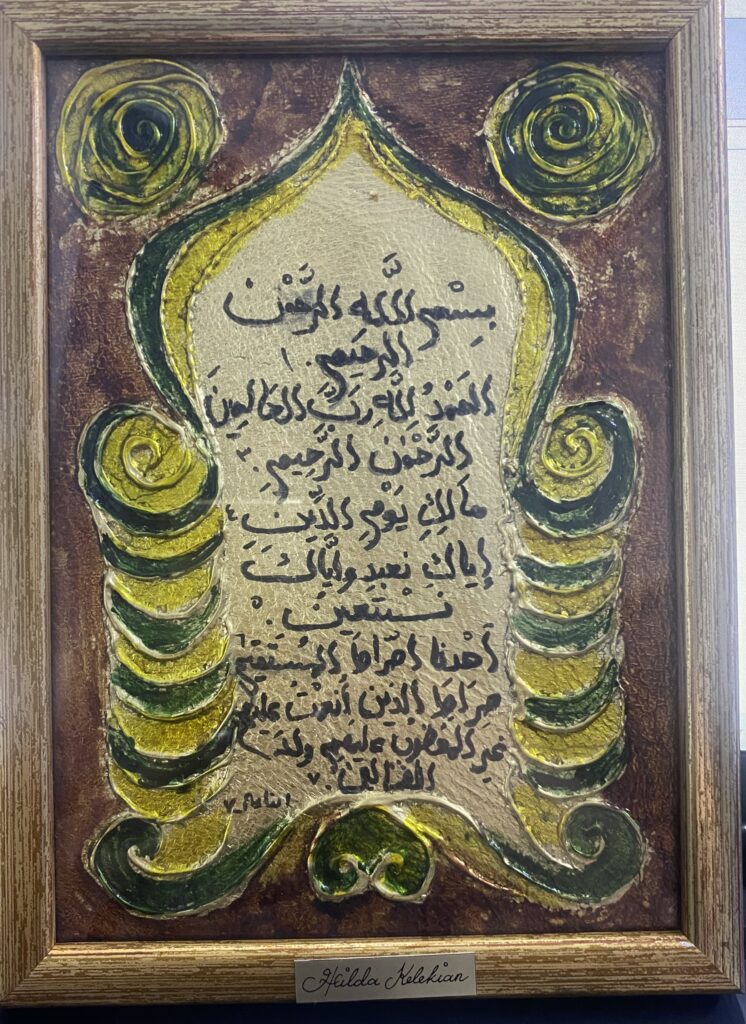 بِسْمِ اللَّه الرَّحْمٰن
الرحَيمِ. ١
الحَمْدُ لِلَّهِ رَبِّ العَالمينَ
الرَّحْمٰن الرَّحِيمِ. ٣
مَالِكِ يَوْمِ الدِّين ٤
إياكَ نعبد وإيَّاكَ
نَسْتَعينَ. ٥
أهْدنا الصِّراطَ المُسْتَقيمَ ٦
صِرَاطَ الذين أنعمْتَ عليهم
غير المغضوب عليهم ولا
الضّالين. ٧
Heilda Kelekian